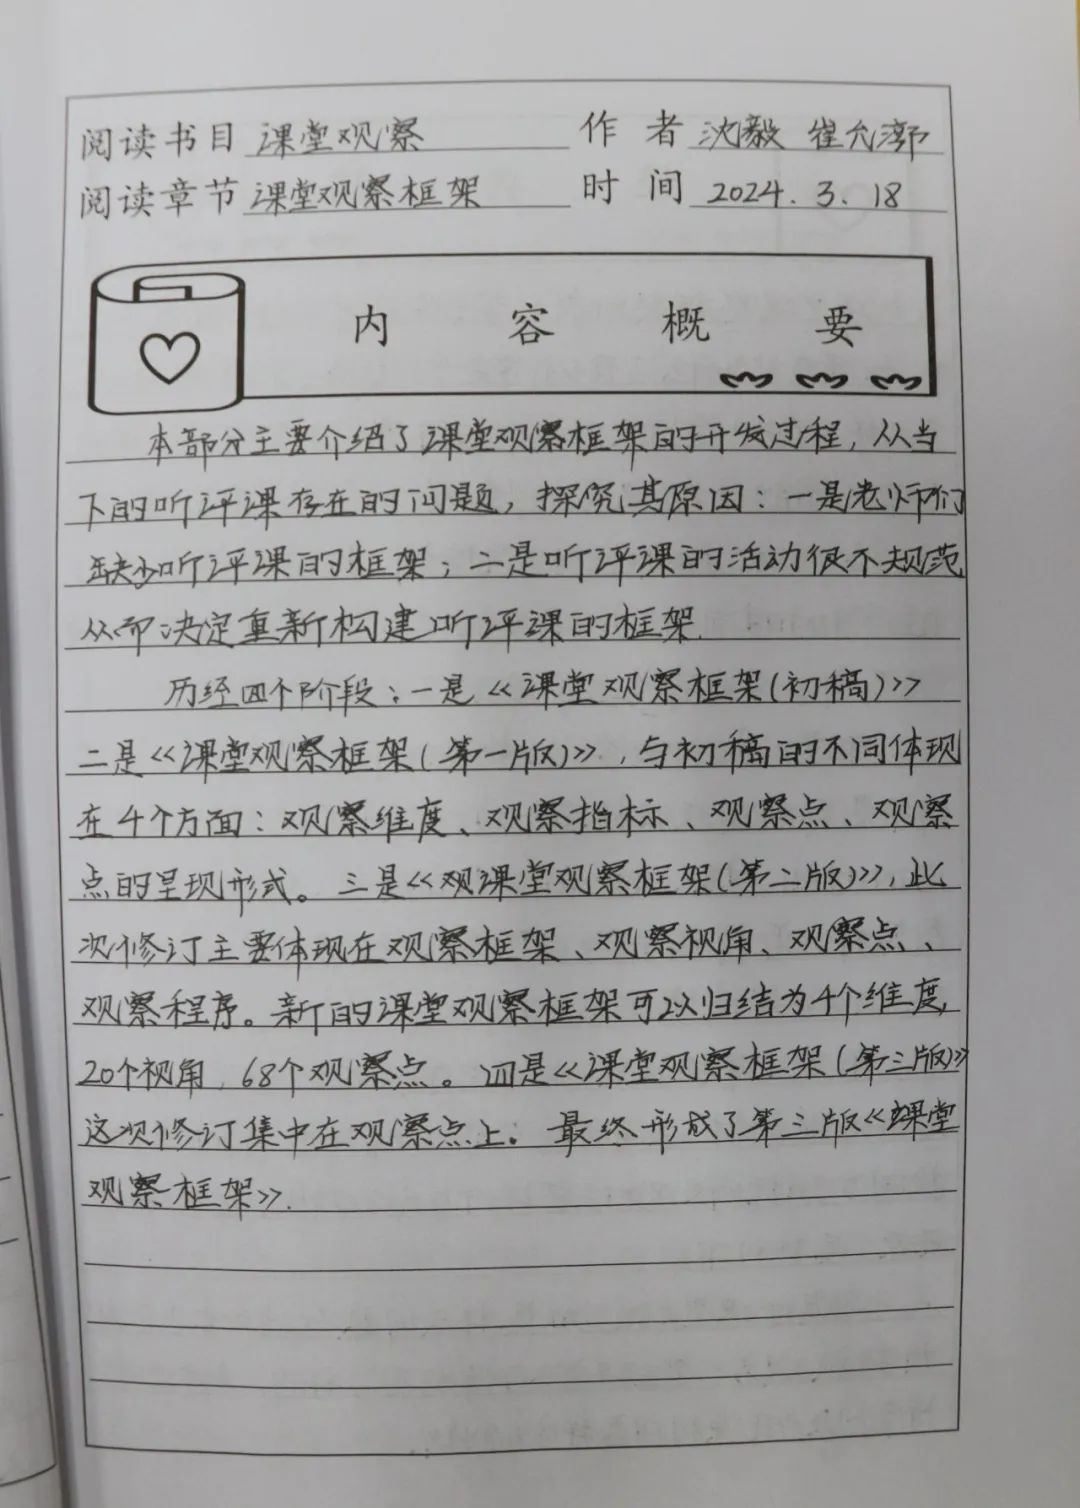 阅读书目 课堂观察 作者 沈毅 崔允漷
阅读章节 课堂观察框架 时间 2024.3.18
内容概要
本部分主要介绍了课堂观察框架的开发过程,从当
下的听评课存在的问题,探究其原因:一是老师们
缺少听评课的框架;二是听评课的活动很不规范
从而决定重新构建听评课的框架.
历经四个阶段:一是《课堂观察框架(初稿)》
二是《课堂观察框架(第一版)》,与初稿的不同体现
在4个方面:观察维度、观察指标、观察点、观察
点的呈现形式。三是《观课堂观察框架(第二版)》,此
次修订主要体现在观察框架、观察视角、观察点、
观察程序。新的课堂观察框架可以归结为4个维度,
20个视角,68个观察点。四是《课堂观察框架(第三版)》
这次修订集中在观察点上。最终形成了第三版《课堂
观察框架》.